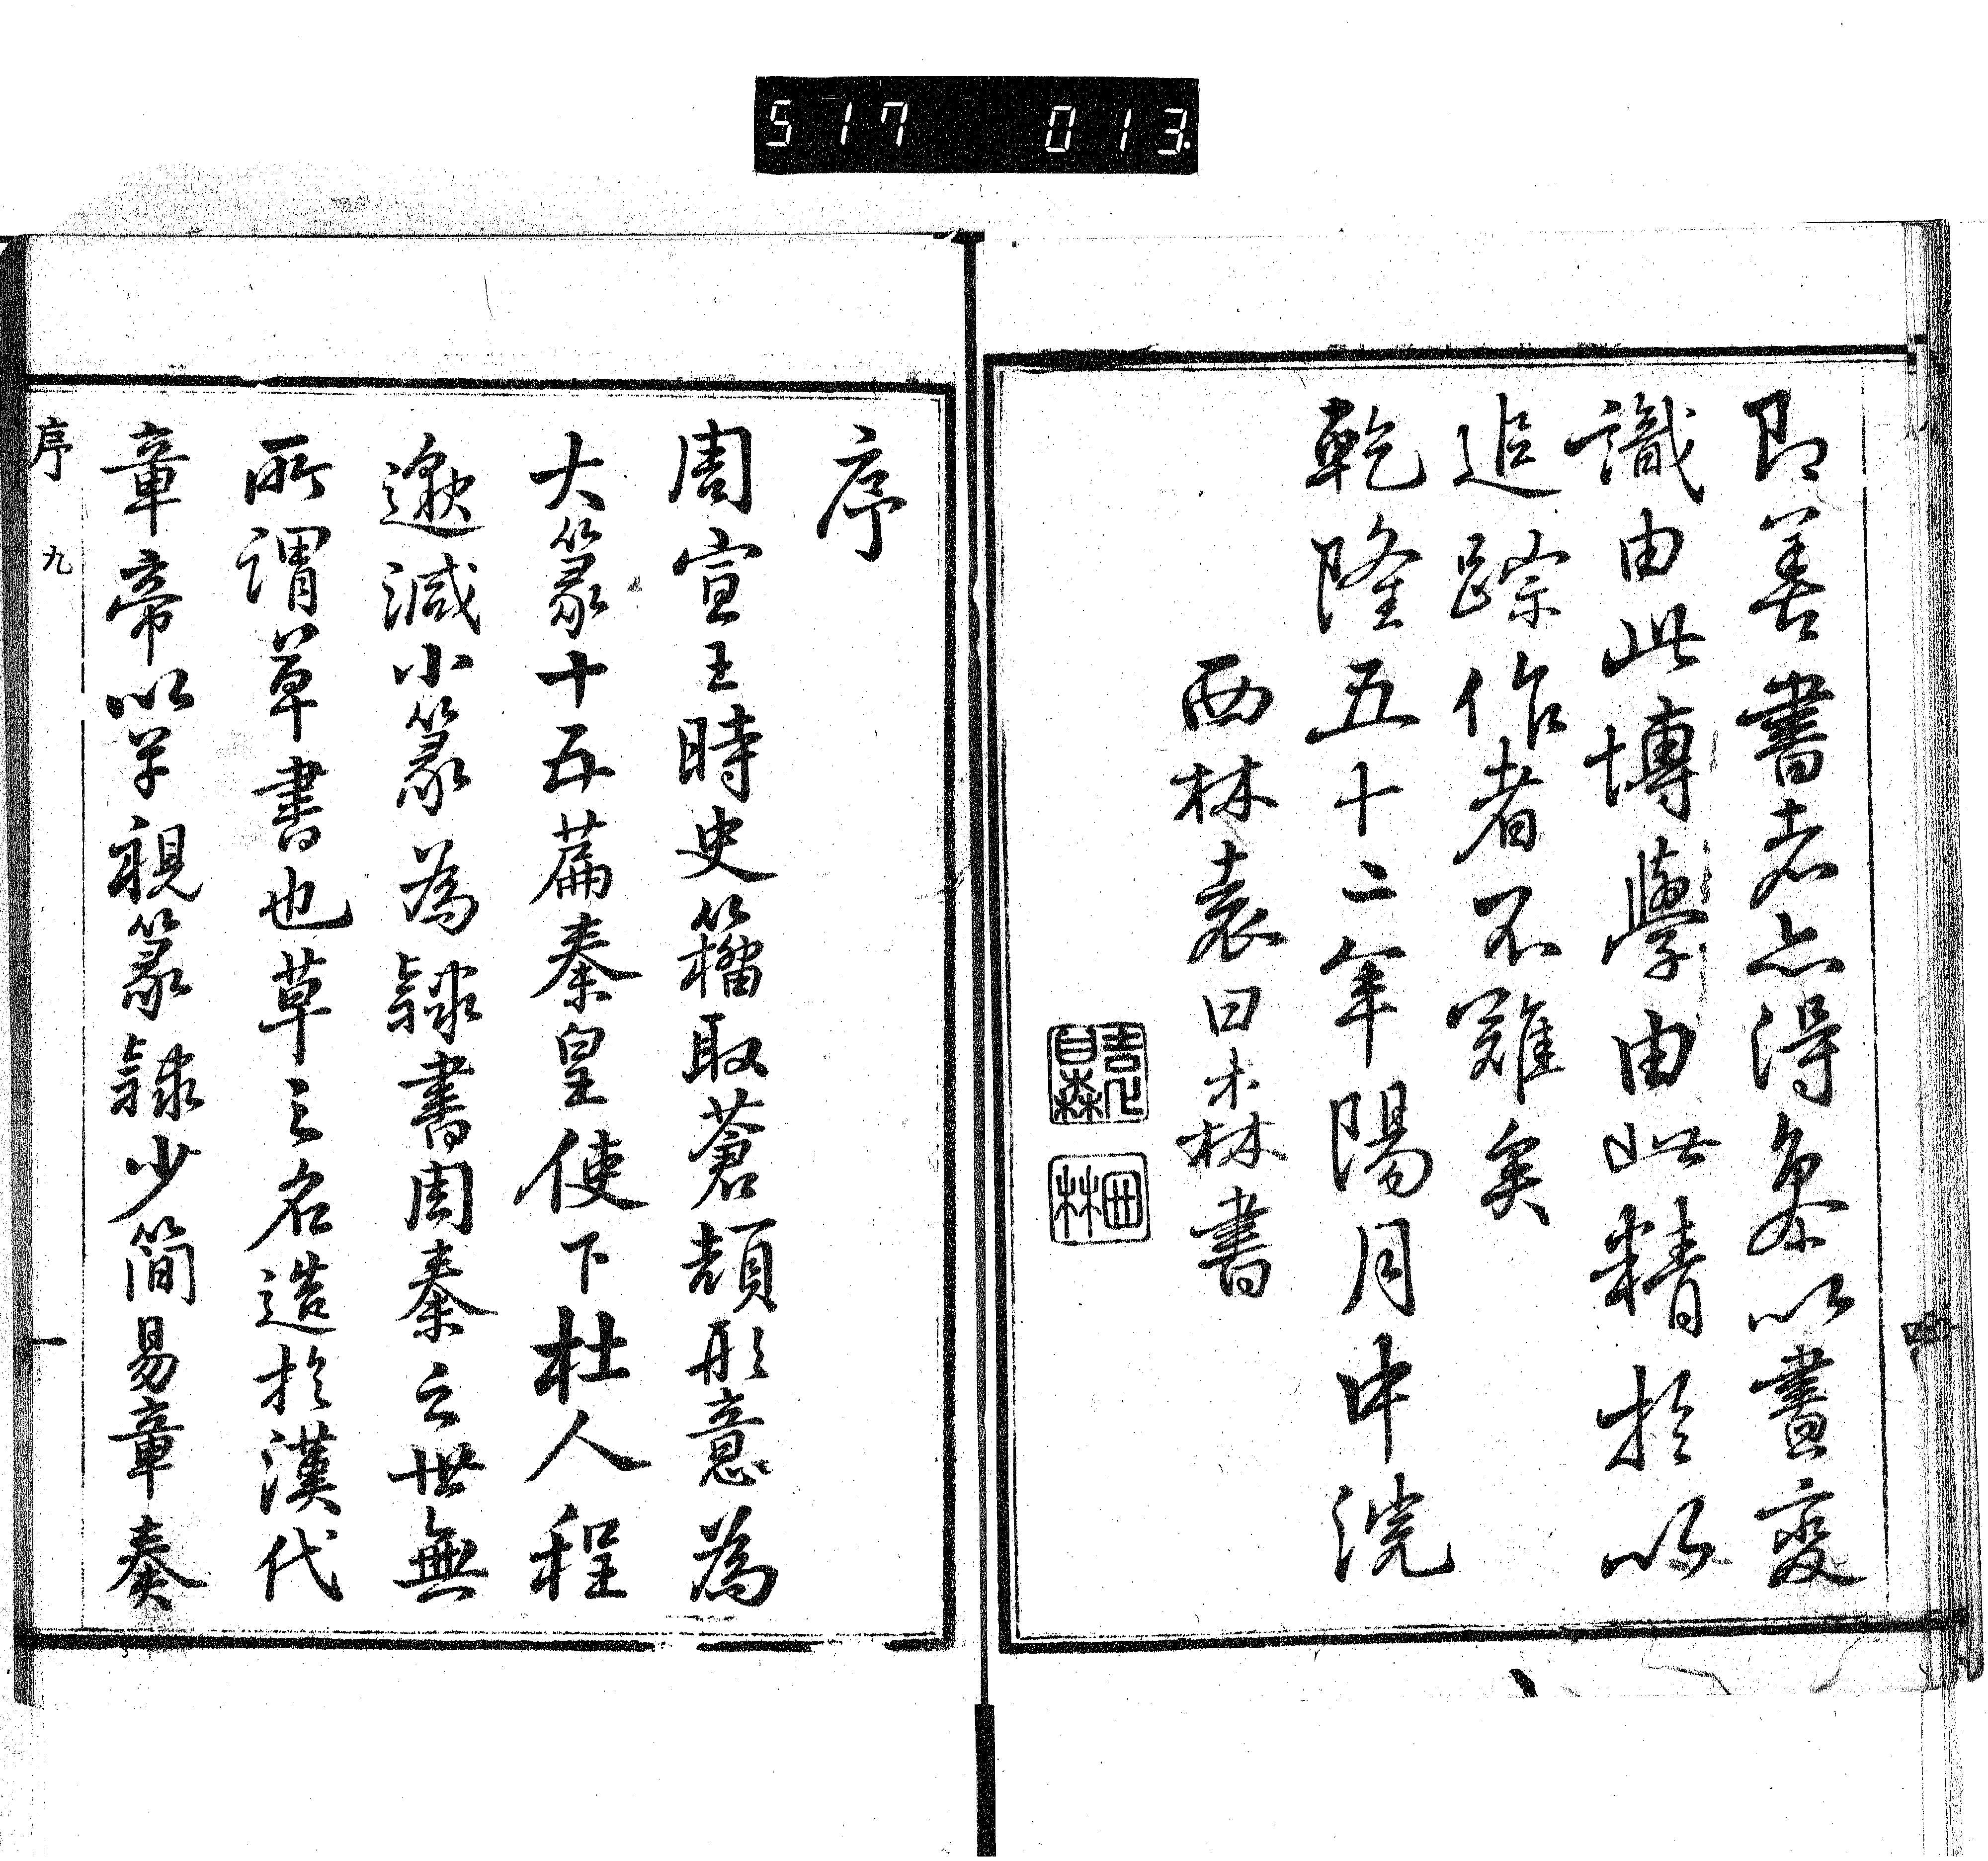 517 013
即善書者亦得參以盡變
識由此博學由此精於以
追踪作者不難矣
乾隆五十二年陽月中浣
西林袁日森書
序
周宣王時史籀取蒼頡形意為
大篆十五篇秦皇使下杜人程
邈減小篆為隸書周秦之世無
所謂草書也草之名造於漢代
章帝以草視篆隸少簡易章奏
序 九
一